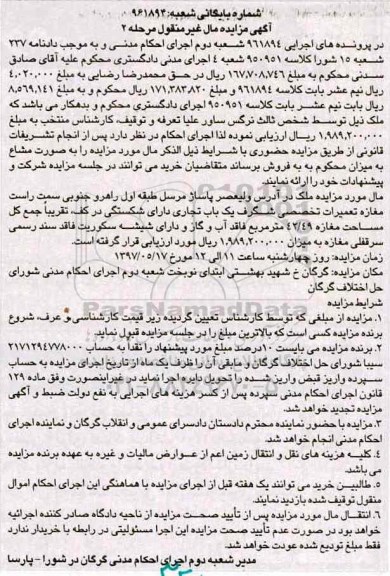 شماره بایگانی شعبه: ۹۶۱۸۹۳
آگهی مزایده مال غیرمنقول مرحله ۲
در پرونده های اجرایی ۹۶۱۸۹۴ شعبه دوم اجرای احکام مدنی و به موجب دادنامه ۲۳۷
شعبه ۱۵ شورا کلاسه ۹۵۰۹۵۱ شعبه ۴ اجرای مدنی دادگستری محکوم علیه آقای صادق
سدنی محکوم به مبلغ ۱۶۷,۷۰۸,۷۴۶ ریال در حق محمدرضا رضایی به مبلغ ۴,۰۲۰,۰۰۰
ریال نیم عشر بابت کلاسه ۹۶۱۸۹۴ و مبلغ ۱۷۱,۳۸۳,۸۲۰ ریال محکوم به و ۸,۵۶۹,۱۴۱
ریال بابت نیم عشر بابت کلاسه ۹۵۰۹۵۱ اجرای دادگستری محکوم و بدهکار می باشد که
ملک ذیل توسط شخص ثالث نرگس ساور علیا تعرفه و توقیف، کارشناس منتخب به مبلغ
۱,۹۸۹,۲۰۰,۰۰۰ ریال ارزیابی نموده لذا اجرای احکام در نظر دارد پس از انجام تشریفات
قانونی از طریق مزایده حضوری با شرایط ذیل الذکر مال مورد مزایده را به صورت مشاع
به میزان محکوم به به فروش برساند متقاضیان خرید می توانند در جلسه مزایده شرکت و
پیشنهادات خود را ارائه نمایند.
مال مورد مزایده ملک در آدرس ولیعصر پاساژ مرسل طبقه اول راهرو جنوبی سمت راست
مغازه تعمیرات تخصصی شگرف یک باب تجاری دارای شکستگی در کف، تقریبا جمع کل
مساحت مغازه ۴۲/۴۹ مترمربع فاقد آب و گاز و دارای شیشه سکوریت فاقد سند رسمی
سرقفلی مغازه به میزان ۱,۹۸۹,۲۰۰,۰۰۰ ریال مورد ارزیابی قرار گرفته است.
زمان مزایده: روز چهارشنبه ساعت ۱۱ الی ۱۲ مورخ ۱۳۹۷/۰۵/۱۷
مکان مزایده: گرگان خ شهید بهشتی ابتدای نوبخت شعبه دوم اجرای احکام مدنی شورای
حل اختلاف گرگان
شرایط مزایده
۱. مزایده از مبلغی که توسط کارشناس تعیین گردیده زیر قیمت کارشناسی و عرف، شروع
برنده مزایده کسی است که بالاترین مبلغ را در جلسه مزایده قبول نماید.
۲. برنده مزایده می بایست ۱۰درصد مبلغ مورد پیشنهاد را نقداً به حساب ۲۱۷۱۲۹۴۷۷۸۰۰۰
سیبا شورای حل اختلاف گرگان و مابقی آن را ظرف یک ماه از تاریخ اجرای مزایده به حساب
سپرده واریز قبض واریز شده را تحویل دایره اجرا نماید در غیراینصورت وفق ماده ۱۲۹
قانون اجرای احکام مدنی سپرده پس از کسر هزینه های اجرایی به نفع دولت ضبط و آگهی
مزایده تجدید خواهد شد.
۳. مزایده با حضور نماینده محترم دادستان دادسرای عمومی و انقلاب گرگان و نماینده اجرای
احکام مدنی انجام خواهد شد.
۴. کلیه هزینه های نقل و انتقال زمین اعم از عوارض مالیات و غیره به عهده برنده مزایده
می باشد.
۵. طالبین خرید می توانند یک هفته قبل از اجرای مزایده با هماهنگی این اجرای احکام اموال
منقول توقیف شده بازدید نمایند.
۶. انتقال مال مورد مزایده پس از تأیید صحت مزایده از ناحیه دادگاه صادر کننده اجرائیه
خواهد بود در صورت عدم تأیید صحت مزایده این اجرا مسئولیتی در رابطه با خریدار ندارد
فقط مبلغ تودیع شده عودت خواهد شد.
مدیر شعبه دوم اجرای احکام مدنی گرگان در شورا - پارسا